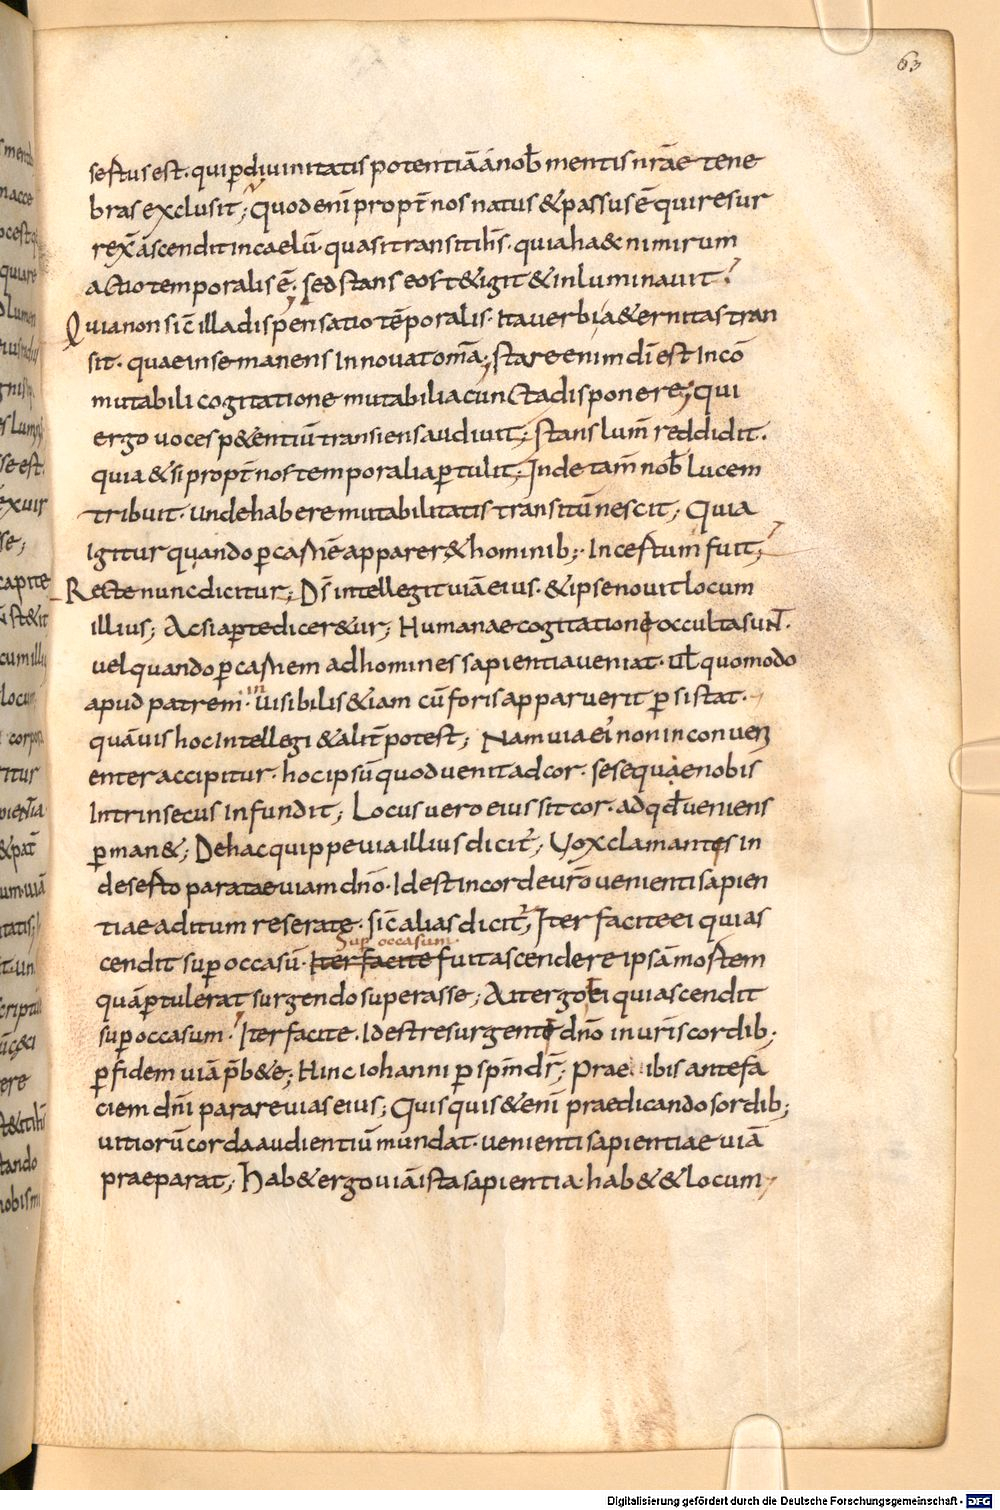 63
sestus est. qui p̱ divinitatis potentiā á nob̄ mentis nr̄ae tene
bras exclusit; Quod enī propt̄ nos natus & passus ē qui resur
rex̄ ascendit in caelū. quasi transit ihs̄. quia haec nimirum
actio temporalis ē. sed stans eos t&igit & inluminavit.
Quia non sic̄ illa dispensatio tēporalis. ita verbi a&ernitas tran
sit. quae in se manens innovat om̄a; stare enim dī est inco
mutabili cogitatione mutabilia cuncta disponere; qui
ergo voces p&entiū transiens audivit; stans lum̄ reddidit.
quia & si propt̄ nos temporalia p̱tulit; Inde tam̄ nob̄ lucem
tribuit. unde habere mutabilitatis transitū nescit; Quia
igitur quando p̱ carnē apparer& hominib; Incestum fuit;
Recte nunc dicitur; Ds̄ intellegit viā eius. & ipse novit locum
illius; Ac si ap̱te dicer&ur; Humanae cogitatione occulta sunt.
vel quando p̱ carnem ad homines sapientia veniat. vl̄ quomodo
apud patrem. in
visibilis &iam cū foris apparuerit p̱sistat.
quāvis hoc intellegi & alit̄ potest; Nam via ei non inconveni
enter accipitur. hoc ipsū quod venit ad cor. sesequae nobis
Intrinsecus infundit; Locus vero eius sit cor. ad qd̄ veniens
p̱man&; De hac quippe via illius dicit̄; Vox clamantes in
deserto paratae viam dn̄o. Id est in corde vr̄o venienti sapien
tiae aditum reserate. sic̄ alias dicit̄; Iter facite ei qui as
sup̱ occasum.
cendit sup̱ occasū. Iter facite fuit ascendere ipsā mortem
quā p̱tulerat surgendo superasse; Ait ergo ei qui ascendit
sup̱ occasum. Iter facite. Id est resurgente dn̄o in vr̄is cordib;
p̱ fidem viā p̄b&e; Hinc iohanni p̱ spm̄ dr̄; Prae ibis ante fa
ciem dn̄i parare vias eius; Quisquis &enī praedicando sordib;
vitiorū corda audientiū mundat. venienti sapientiae viā
praeparat; Hab& ergo viā ista sapientia. hab& & locum
Digitalisierung gefördert durch die Deutsche Forschungsgemeinschaft - DFG